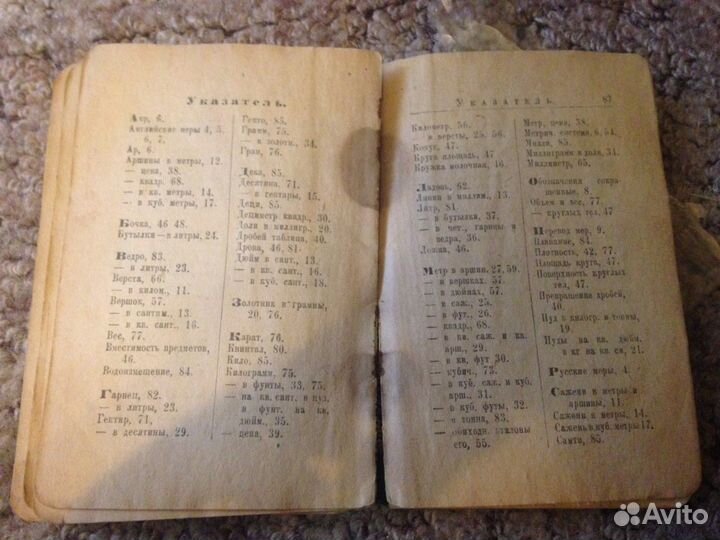 Указатель.
Акр, 6.
Английские меры 4, 5,
6, 7.
Ар, 6.
Аршины в метры, 12.
— цена, 38.
— квадр. 68.
— в кв. метры, 14.
— в куб. метры, 17.
Бочка, 46 48.
Бутылки — в литры, 24.
Ведро, 83.
— в литры, 23.
Верста, 66.
— в килом., 11.
Вершок, 57.
— в сантим., 13.
— в кв. сант., 16.
Вес, 77.
Вместимость предметов,
46.
Водоизмещение, 84.
Гарнец, 82.
— в литры, 23.
Гектар, 71,
— в десятины, 29.
Гекто, 85.
Грамм, 75.
— в золотн., 34.
Гран, 76.
Дека, 85.
Десятина, 71.
— в гектары, 15.
Деци, 85.
Дециметр квадр., 30.
Доли в миллигр., 20.
Дробей таблица, 40.
Дрова, 46, 81.
Дюйм в сант., 13.
— в кв. сант., 16.
— в куб. сант., 18.
Золотник в граммы,
20, 76.
Карат, 76.
Квинтал, 80.
Кило, 85.
Килограмм, 75.
— в фунты, 33, 75.
— на кв. сант. в пуд.
и фунт. на кв.
дюйм., 35.
— цена, 39.
Указатель. 87
Километр, 56.
— в версты, 25, 56.
Конус, 47.
Круга площадь, 47
Кружка молочная, 46.
Ладонь, 62.
Линии в миллим., 13.
Литр, 81.
— в бутылки, 37.
— в чет., гарнцы и
ведра, 36.
Ложка, 46.
Метр в аршин, 27, 59.
— в вершках, 57.
— в дюймах, 57.
— в саж., 25.
— в фут., 26.
— квадр., 68.
— в кв. саж. и кв.
арш., 29.
— в кв. фут 30.
— кубич., 73.
— в куб. саж. и куб.
арш., 31.
— в куб. футы, 32.
— и тонна, 83.
— обиходн. эталоны
его, 55.
Метр, цена, 38.
Метрич. система, 6, 54.
Милли, 85.
Миллиграмм в доли, 34.
Миллиметр, 65.
Обозначения сокра-
щенные, 8.
Объем и вес, 77.
— круглых тел, 47
Перевод мер, 9.
Плавание, 84.
Плотность, 42, 77.
Площадь круга, 47.
Поверхность круглых
тел, 47.
Превращения дробей,
40.
Пуд в килогр. и тонны,
19.
Пуды на кв. дюйм.
в кг на кв см, 21.
Русские меры, 4.
Сажени в метры и
аршины, 11.
Сажени в метры, 14.
Сажень в куб. метры 17.
Санти, 85.
Avito